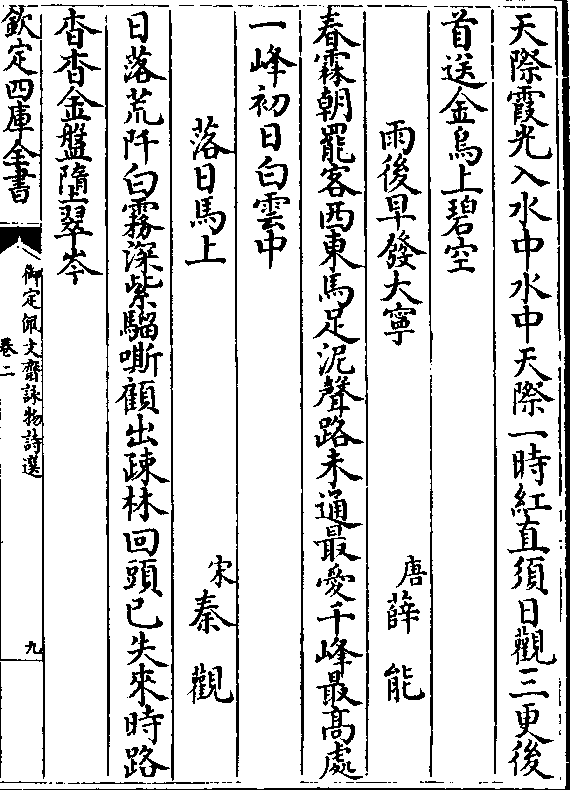 天際霞光入水中水中天際一時紅直須日觀三更後
首送金烏上碧空
雨後早發大寧
唐薛能
春霖朝罷客西東馬足泥聲路未通最愛千峰最高處
一峰初日白雲中
落日馬上
宋秦觀
日落荒阡白霧深紫騮嘶顧出疎林回頭已失來時路
杳杳金盤墮翠岑
欽定四庫全書
御定佩文齋詠物詩選
卷二
九